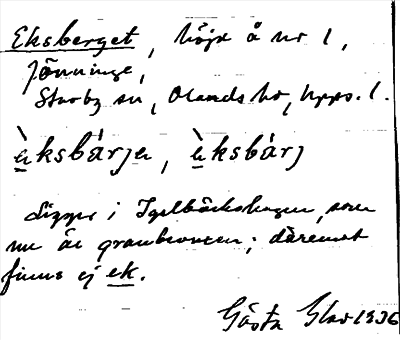 Eksberget, höjd å nr 1,
Jönninge,
Starby sn, Olands hd, Upps. l.
èksbárjer, èksbárj
Ligger i Igelbäckshagen, som
nu är granbevuxen; däremot
finns ej ek.
Gösta Glas 1936